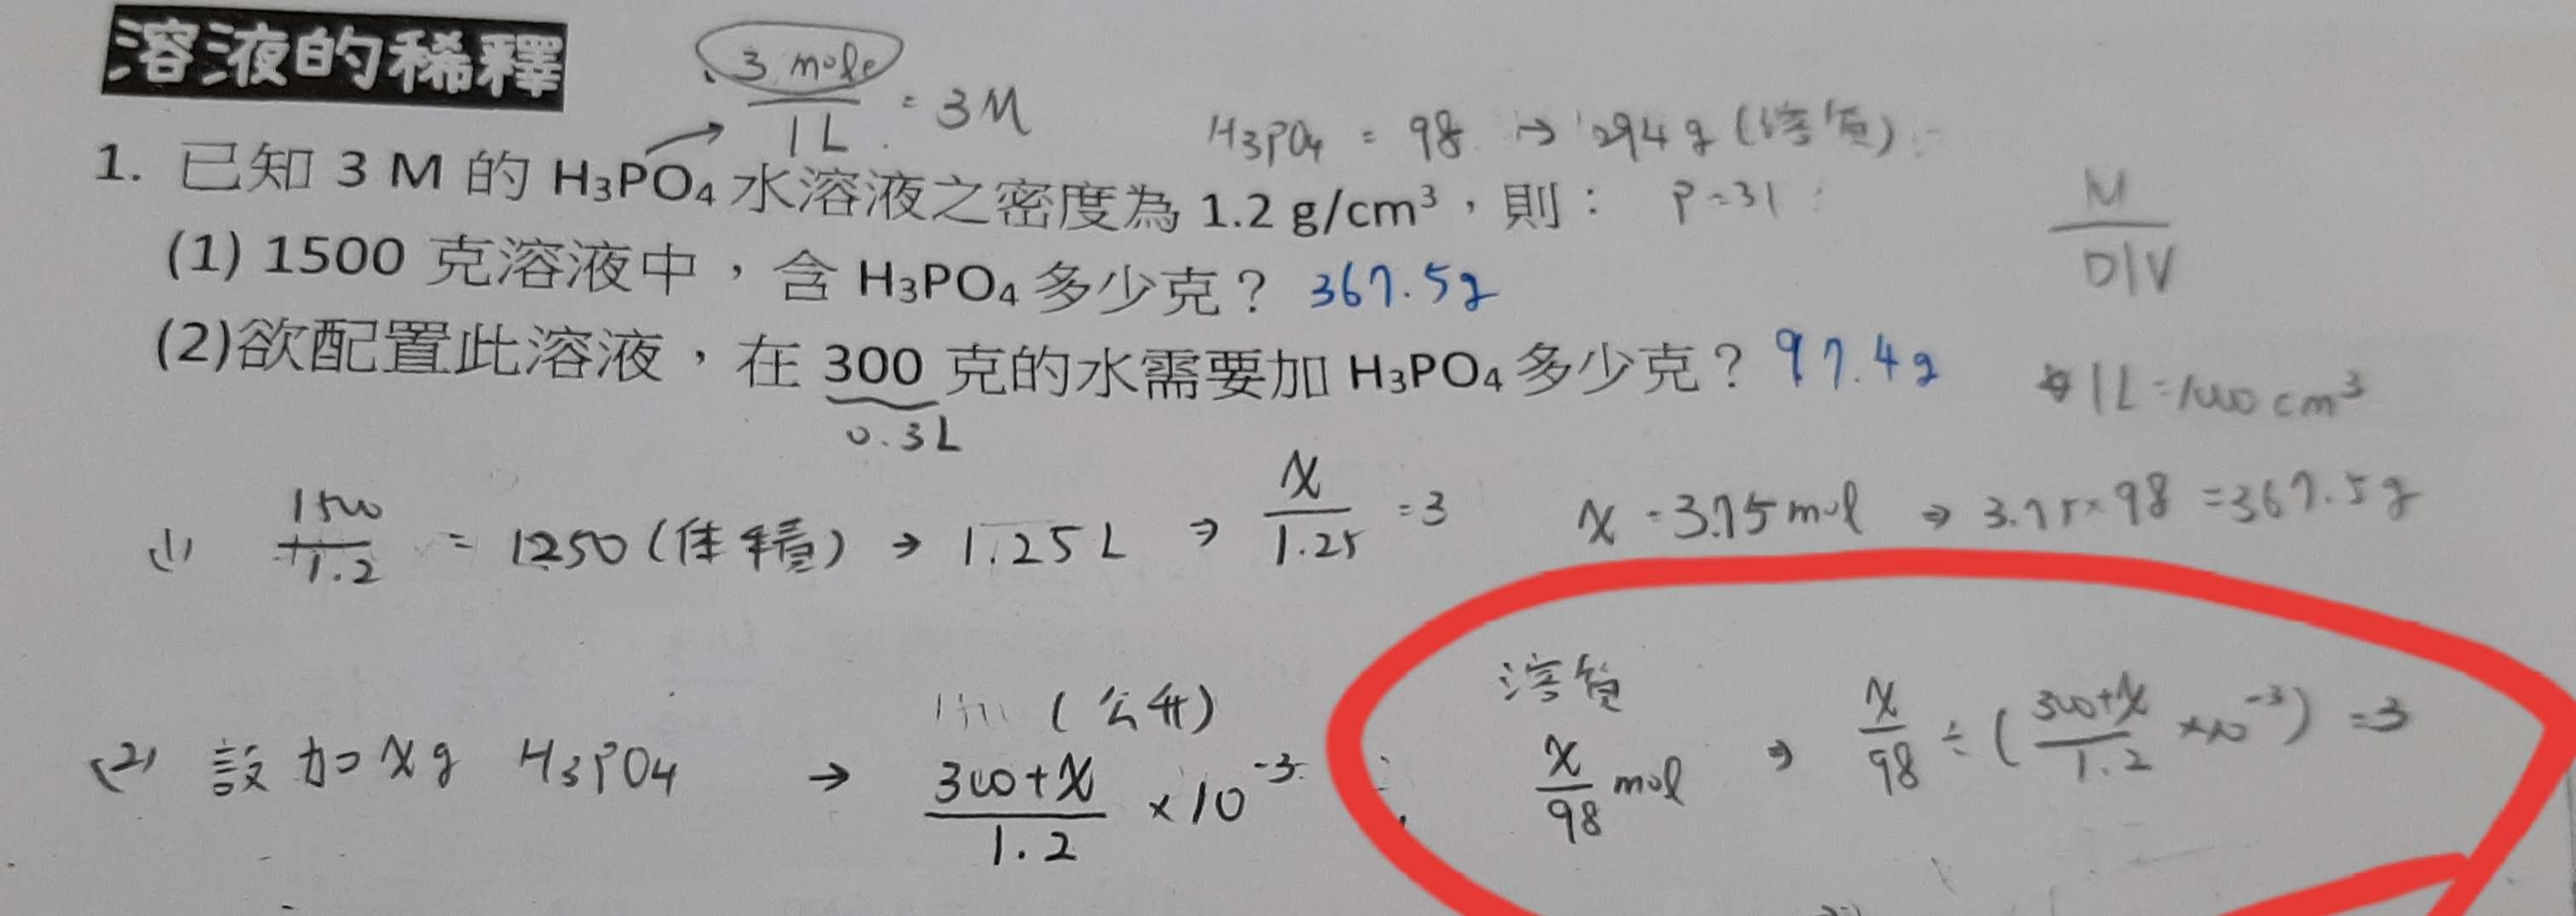 溶液的稀釋
3 mole / 1L = 3M
H₃PO₄ = 98 → 294g (溶質)
1. 已知 3 M 的 H₃PO₄ 水溶液之密度為 1.2 g/cm³，則： P=31
M / D|V
(1) 1500 克溶液中，含 H₃PO₄ 多少克？ 367.5g
(2)欲配置此溶液，在 300 克的水需要加 H₃PO₄ 多少克？ 97.4g
0.3L
1L=1000cm³
(1) 1500/1.2 = 1250(体積) → 1.25L ⇒ x/1.25 = 3 x=3.75mol ⇒ 3.75×98=367.5g
(2) 設加 x g H₃PO₄ → (300+x)/1.2 ×10⁻³ (公升)
溶質
x/98 mol ⇒ x/98 ÷ ((300+x)/1.2 ×10⁻³) = 3